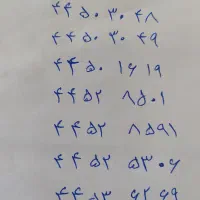 ۴۴ ۵۰ ۳۰ ۴۸
۴۴ ۵۰ ۳۰ ۴۹
۴۴ ۵۰ ۱۶ ۱۹
۴۴ ۵۲ ۸۵۰۱
۴۴ ۵۲ ۸۵۹۱
۴۴ ۵۲ ۵۳۰۶
۴۴ ۵۳ ۶۲ ۶۹